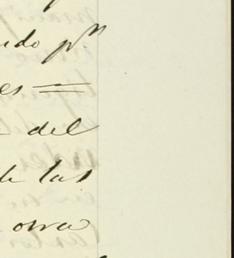 ido pᵒʳ
es =
del
de las
otra